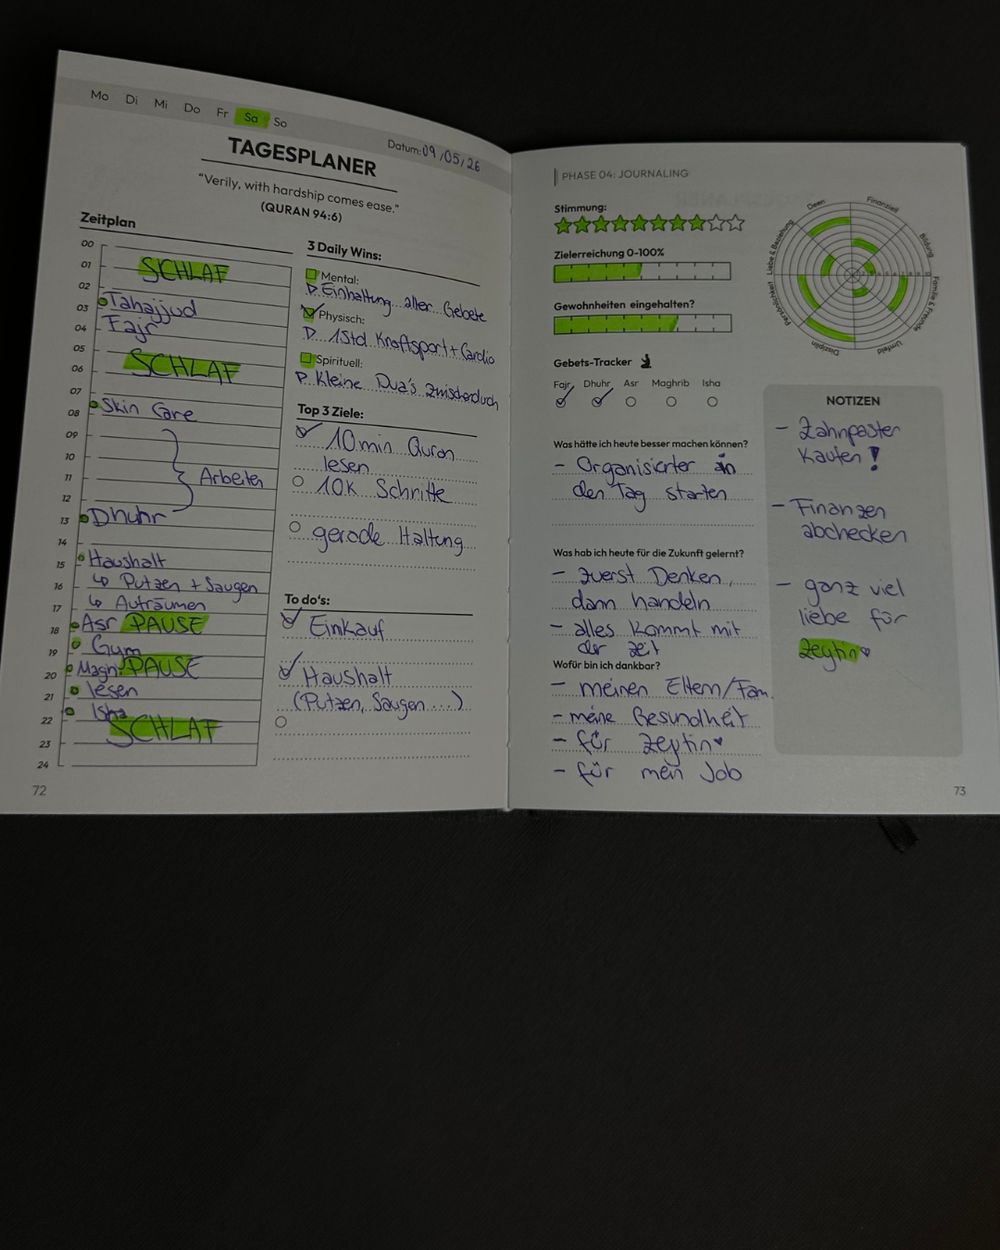 Mo Di Mi Do Fr Sa So
Datum: 09/05/26
TAGESPLANER
"Verily, with hardship comes ease."
(QURAN 94:6)
Zeitplan
00
SCHLAF
01
02
Tahajjud
03
Fajr
04
05
SCHLAF
06
07
Skin Care
08
09
10
Arbeiten
11
12
Dhuhr
13
14
Haushalt
15
↳ Putzen + Saugen
16
↳ Aufräumen
17
Asr PAUSE
18
Gym
19
Magh. PAUSE
20
lesen
21
Isha
22
SCHLAF
23
24
3 Daily Wins:
Mental:
Einhaltung aller Gebete
Physisch:
1Std Kraftsport + Cardio
Spirituell:
Kleine Dua's zwischendurch
Top 3 Ziele:
10min Quran
lesen
10K Schritte
gerade Haltung
To do's:
Einkauf
Haushalt
(Putzen, Saugen....)
72
PHASE 04: JOURNALING
Stimmung:
Zielerreichung 0-100%
Gewohnheiten eingehalten?
Gebets-Tracker
Fajr Dhuhr Asr Maghrib Isha
Was hätte ich heute besser machen können?
- Organisierter in
den Tag starten
Was hab ich heute für die Zukunft gelernt?
- zuerst Denken,
dann handeln
- alles kommt mit
der Zeit
Wofür bin ich dankbar?
- meinen Eltern/Fam.
- meine Gesundheit
- für Zeytin♥
- für mein Job
Deen
Finanziell
Bildung
Familie & Freunde
Umfeld
Disziplin
Persönlichkeit
Liebe & Beziehung
NOTIZEN
- Zahnpaster
kaufen!
- Finanzen
abchecken
- ganz viel
liebe für
Zeytin♥
73